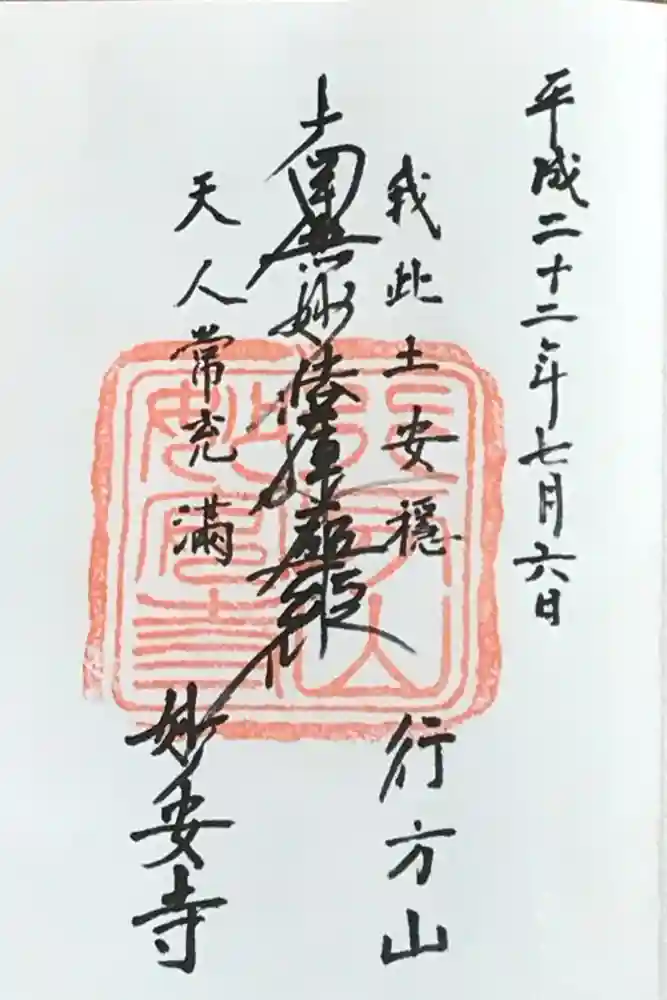 平成二十二年七月六日
我此土安穏
行方山
南無妙法蓮華経
天人常充満
妙安寺